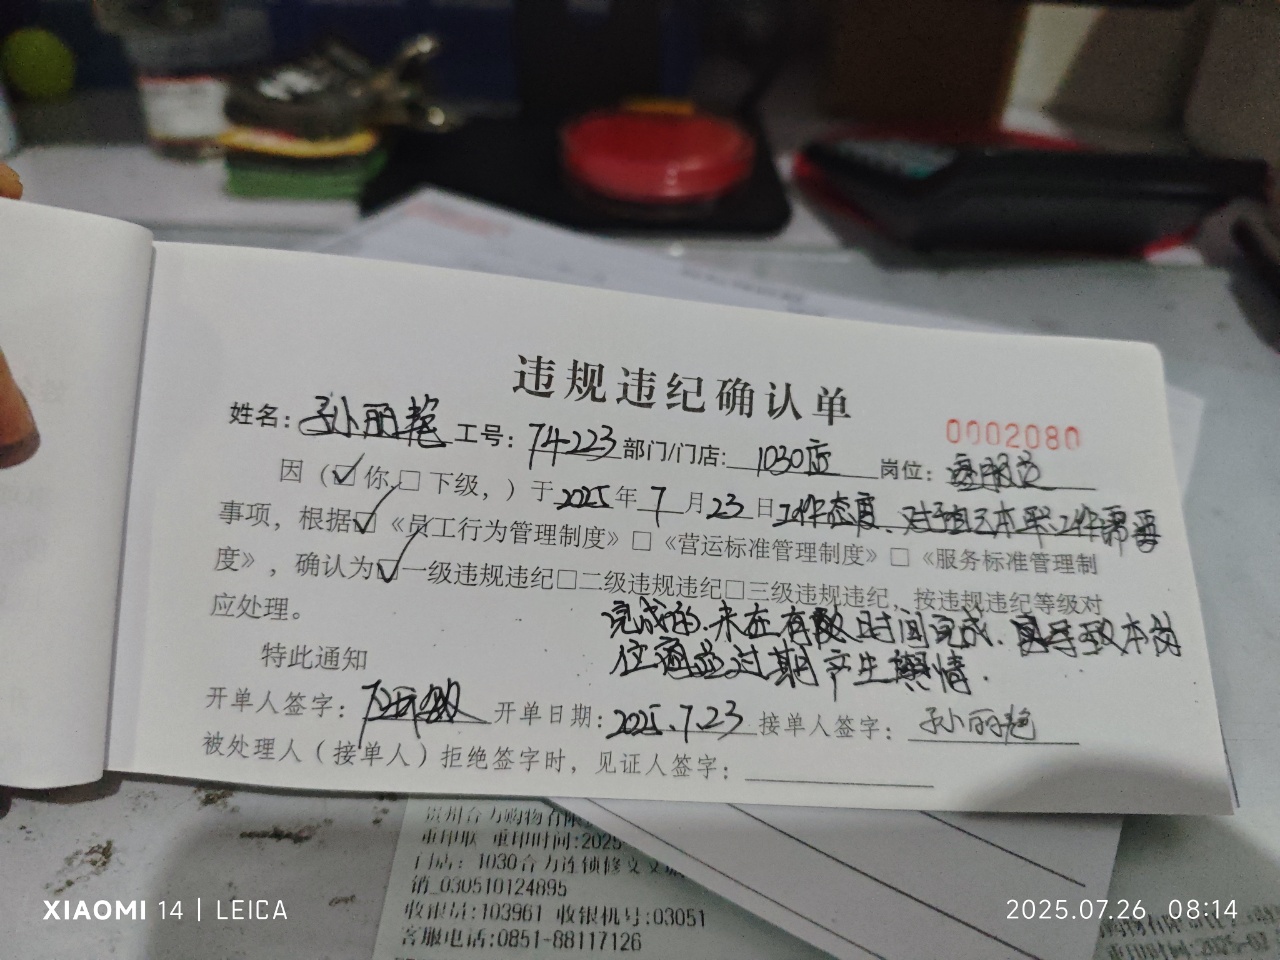 违规违纪确认单
0002080
姓名：孙丽艳 工号：74223 部门/门店：1030店 岗位：客服员
因（☑你，☐下级，）于2025年7月23日工作态度、对
事项，根据☑《员工行为管理制度》☐《营运标准管理制度》☐《服务标准管理制
度》，确认为☑一级违规违纪☐二级违规违纪☐三级违规违纪，按违规违纪等级对
应处理。
完成的，未在有效时间完成、导致本岗
特此通知
位商品过期产生舆情.
开单人签字： 开单日期：2025.7.23 接单人签字：孙丽艳
被处理人（接单人）拒绝签字时，见证人签字：
贵州合力购物有限
重印联 重印时间:2025-
门店：1030合力连锁修文文
销_030510124895
收银员:103961 收银机号:03051
客服电话:0851-88117126
XIAOMI 14 | LEICA
2025.07.26 08:14